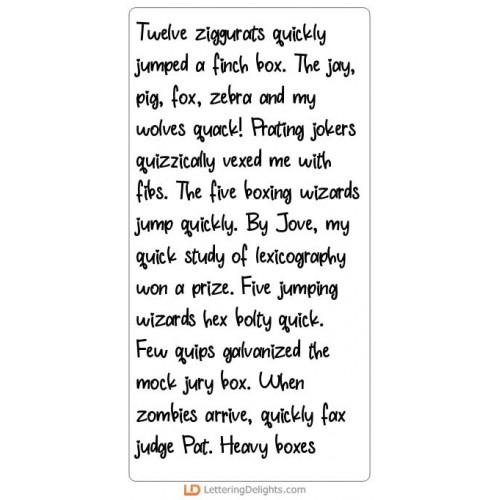 Twelve ziggurats quickly
jumped a finch box. The jay,
pig, fox, zebra and my
wolves quack! Prating jokers
quizzically vexed me with
fibs. The five boxing wizards
jump quickly. By Jove, my
quick study of lexicography
won a prize. Five jumping
wizards hex bolty quick.
Few quips galvanized the
mock jury box. When
zombies arrive, quickly fax
judge Pat. Heavy boxes
LD LetteringDelights.com